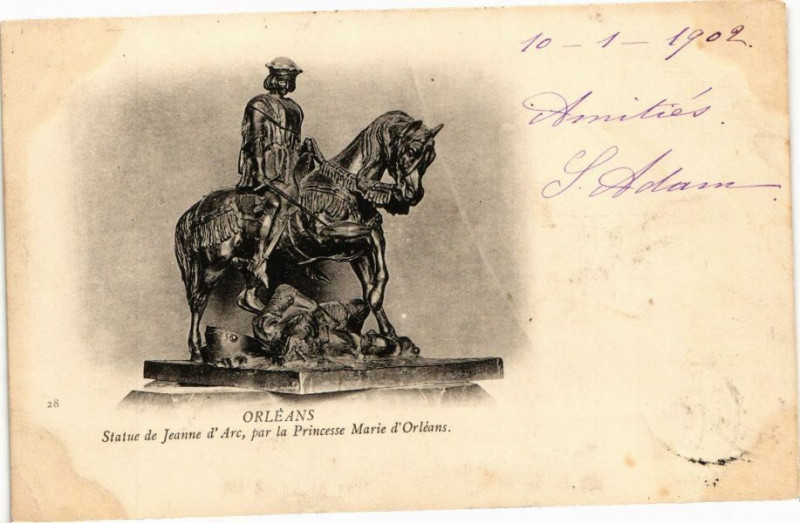 10 - 1 - 1902.
Amitiés.
S. Adam
28
ORLÉANS
Statue de Jeanne d'Arc, par la Princesse Marie d'Orléans.